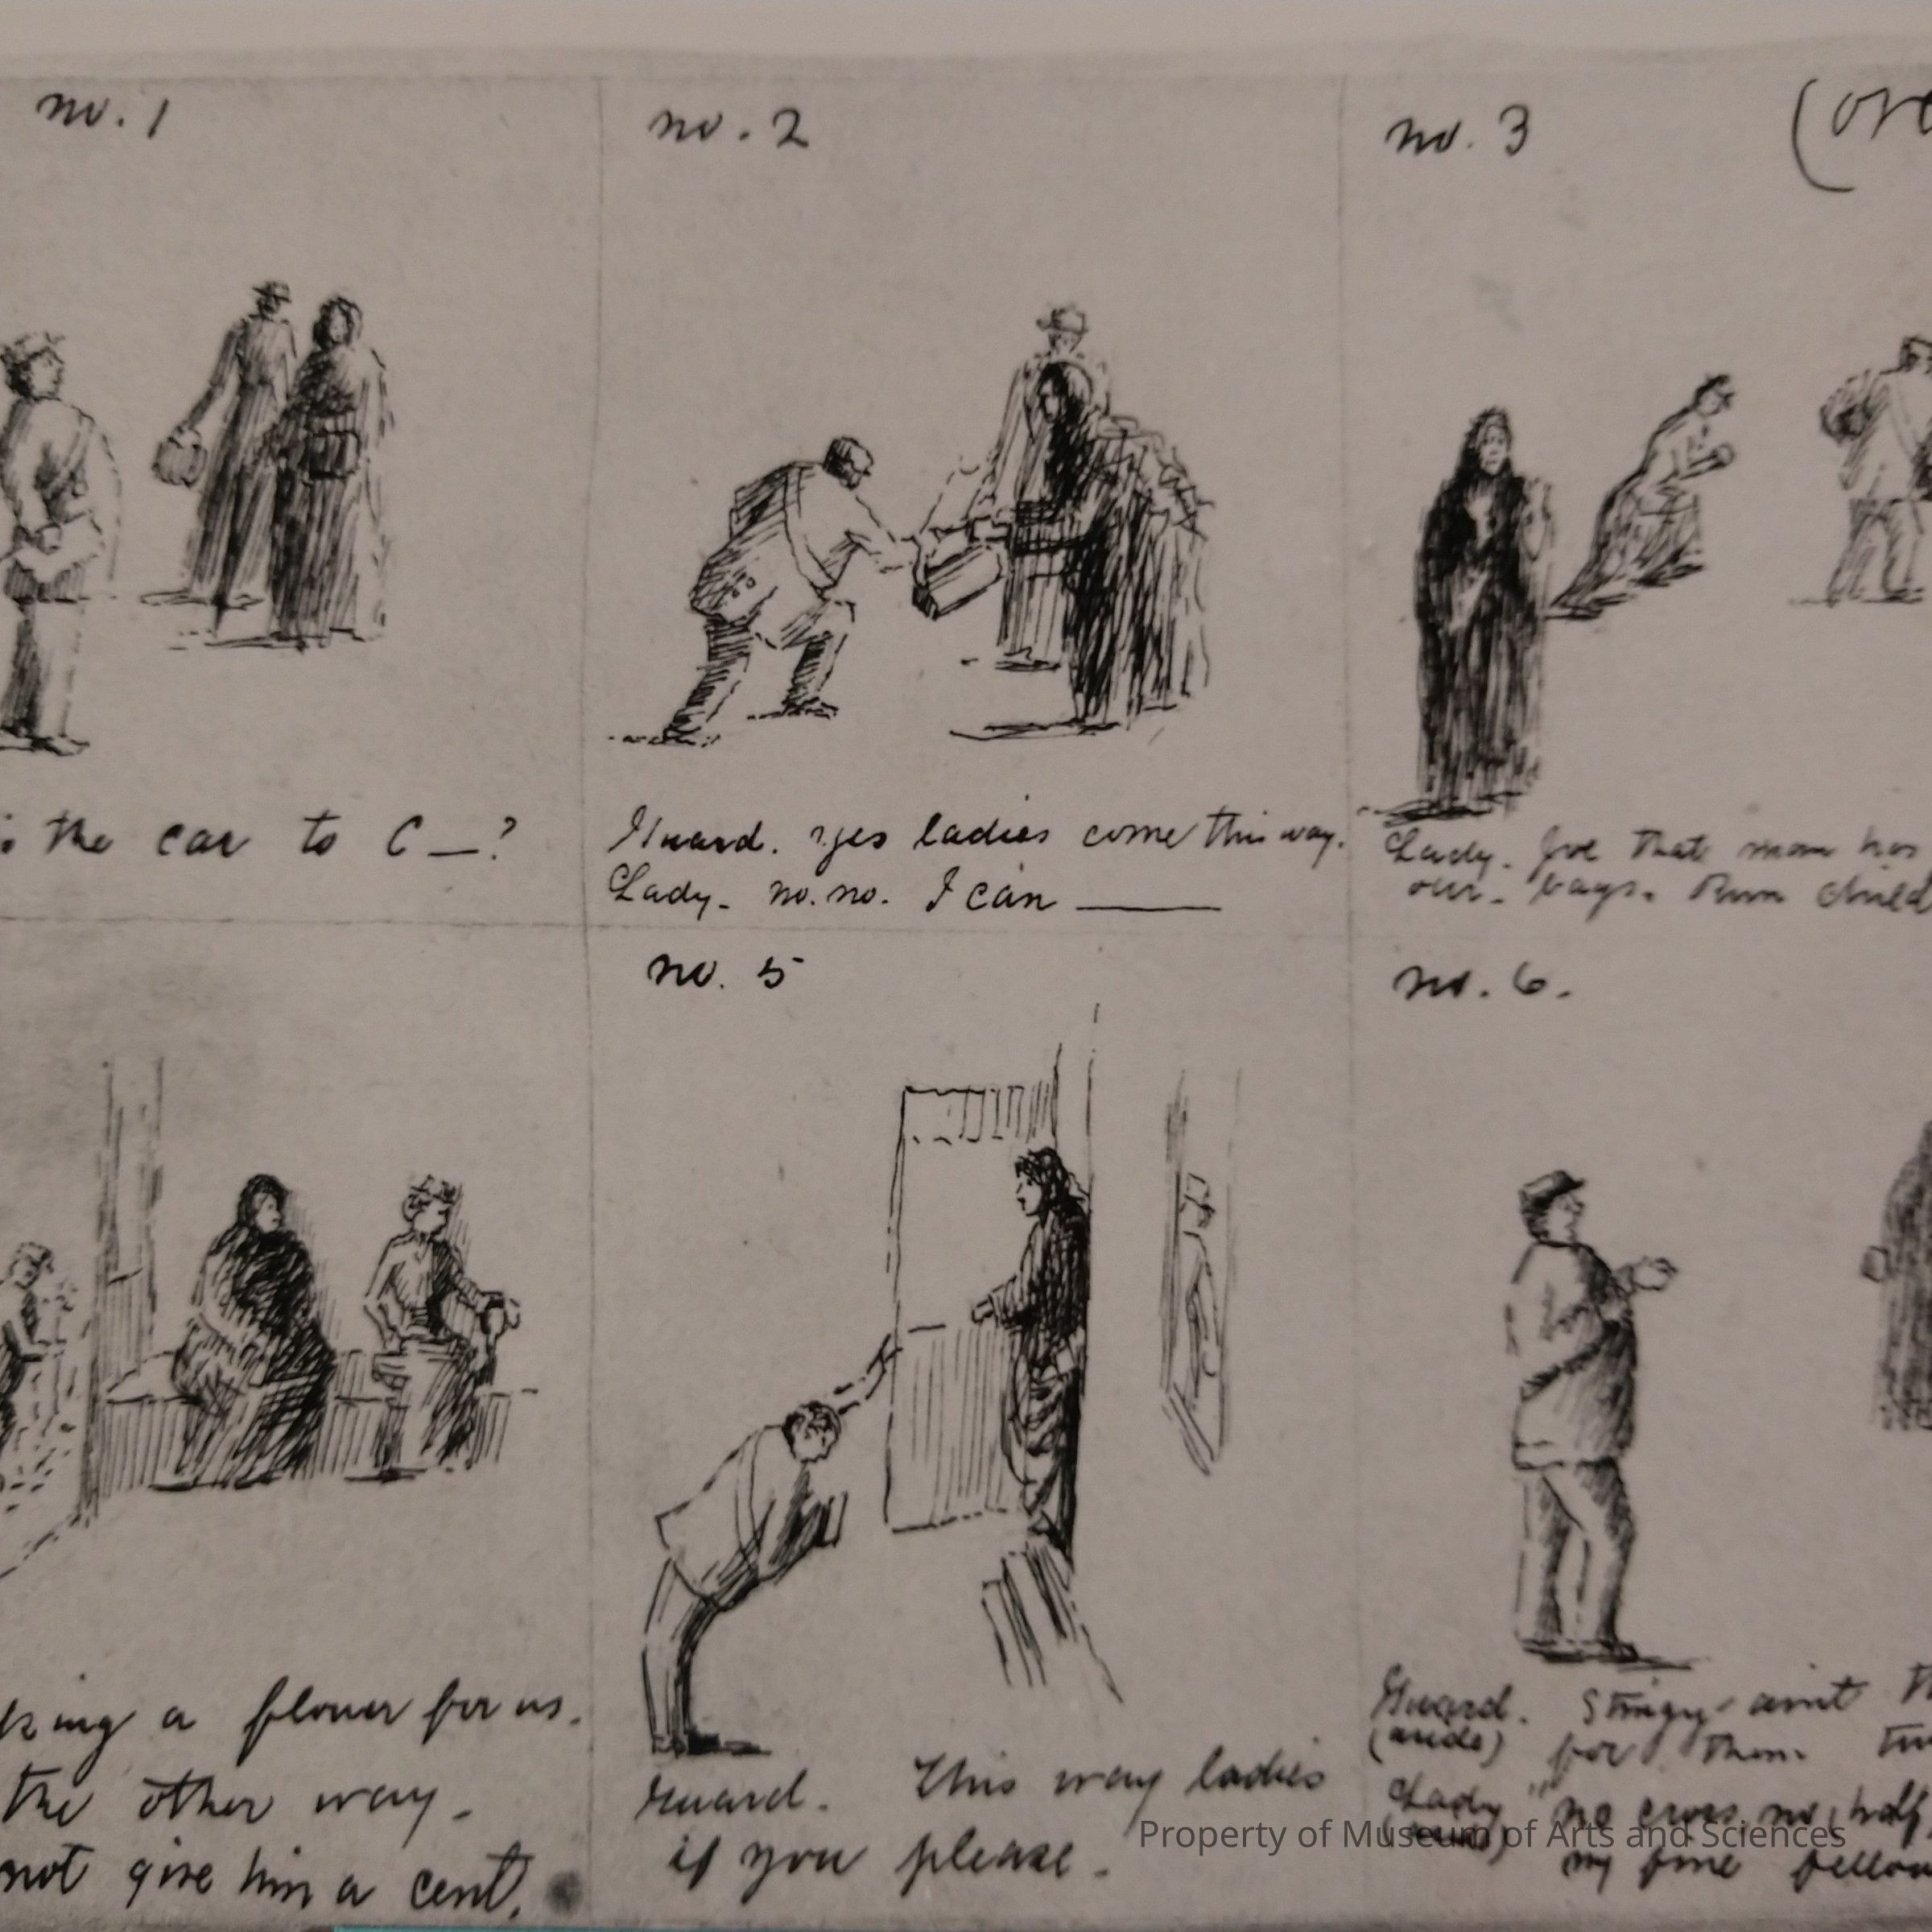 no. 1
no. 2
no. 3
(ove
the car to C—?
Guard. yes ladies come this way.
Lady. no. no. I can ———
Lady. Joe that man has
our. bags. Run child
no. 5
no. 6.
king a flower for us.
the other way.
not give him a cent.
Guard. This way ladies
if you please.
Guard. Stingy aint
(aside) for them.
Lady "no cross, no half
my fine fellow
Property of Museum of Arts and Sciences